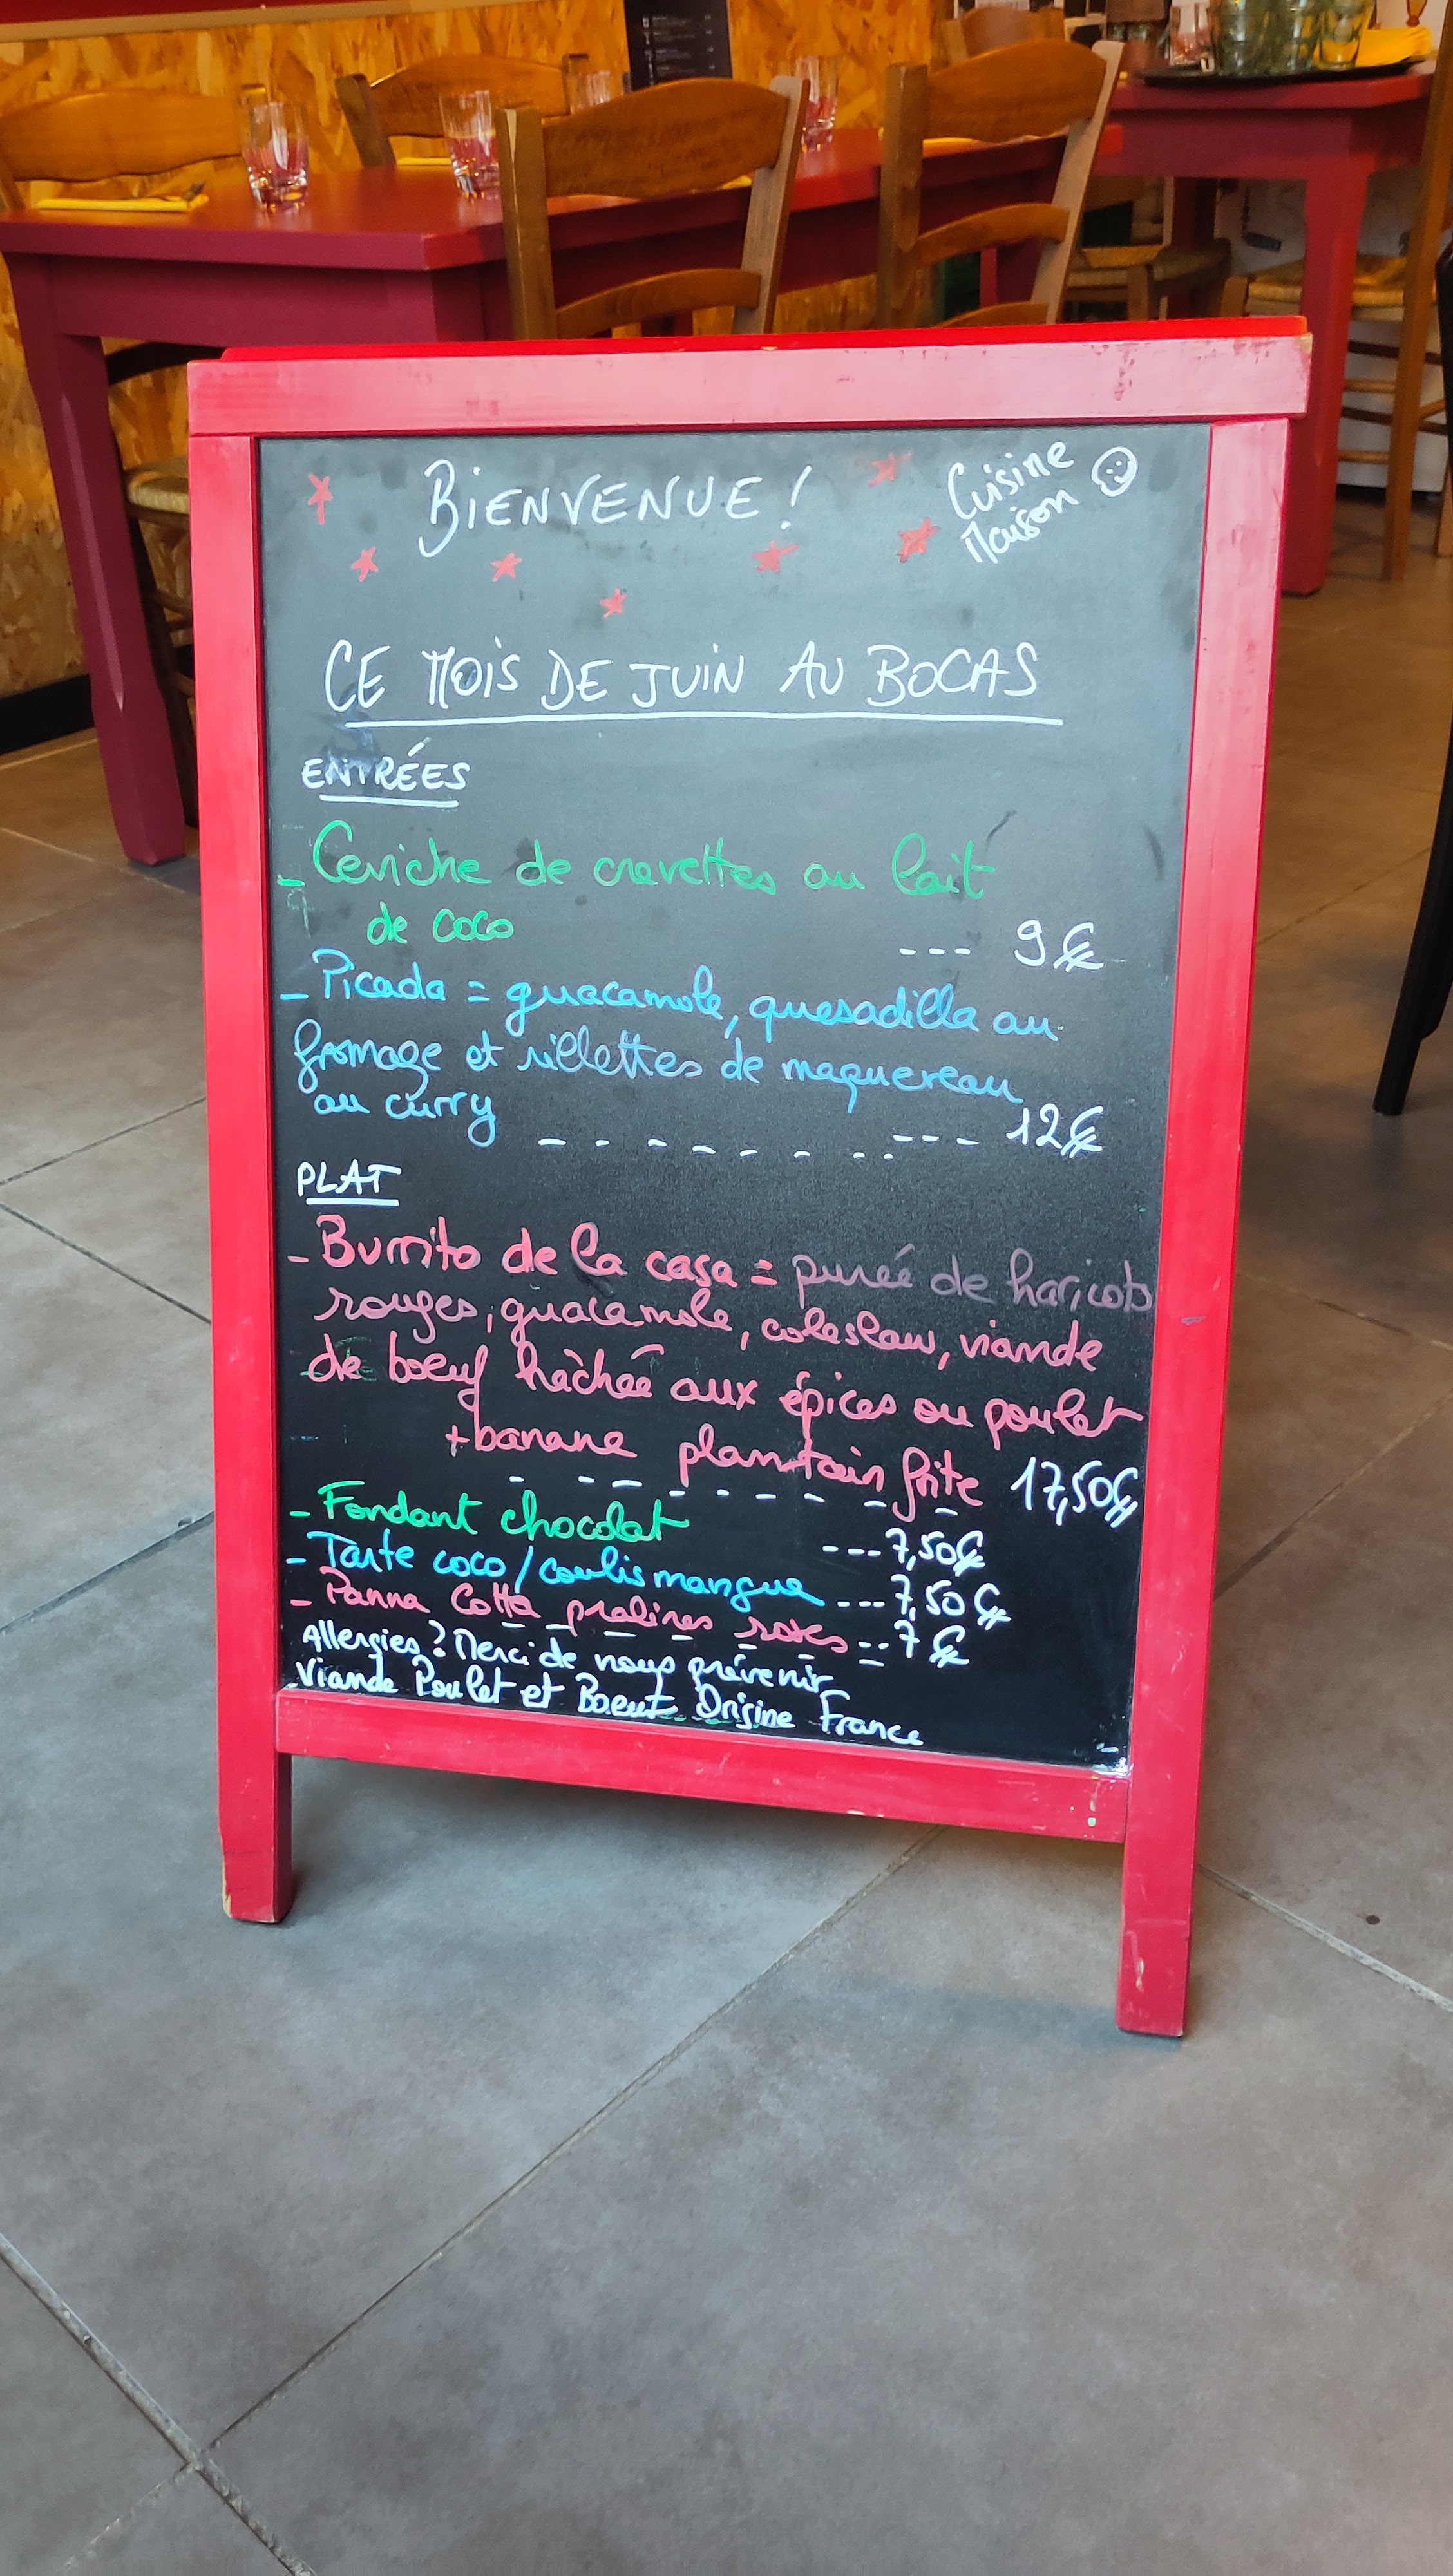 BIENVENUE !
Cuisine
Maison
CE MOIS DE JUIN AU BOCAS
ENTRÉES
- Ceviche de crevettes au lait
de coco --- 9€
- Picada = guacamole, quesadilla au
fromage et rillettes de maquereau
au curry - - - - - - - - --- 12€
PLAT
- Burrito de la casa = purée de haricots
rouges, guacamole, coleslaw, viande
de boeuf hàchée aux épices ou poulet
+ banane plantain frite 17,50€
- Fondant chocolat --- 7,50€
- Tarte coco / coulis mangue --- 7,50€
- Panna Cotta pralines roses -- 7€
Allergies ? Merci de nous prévenir
Viande Poulet et Boeuf Origine France